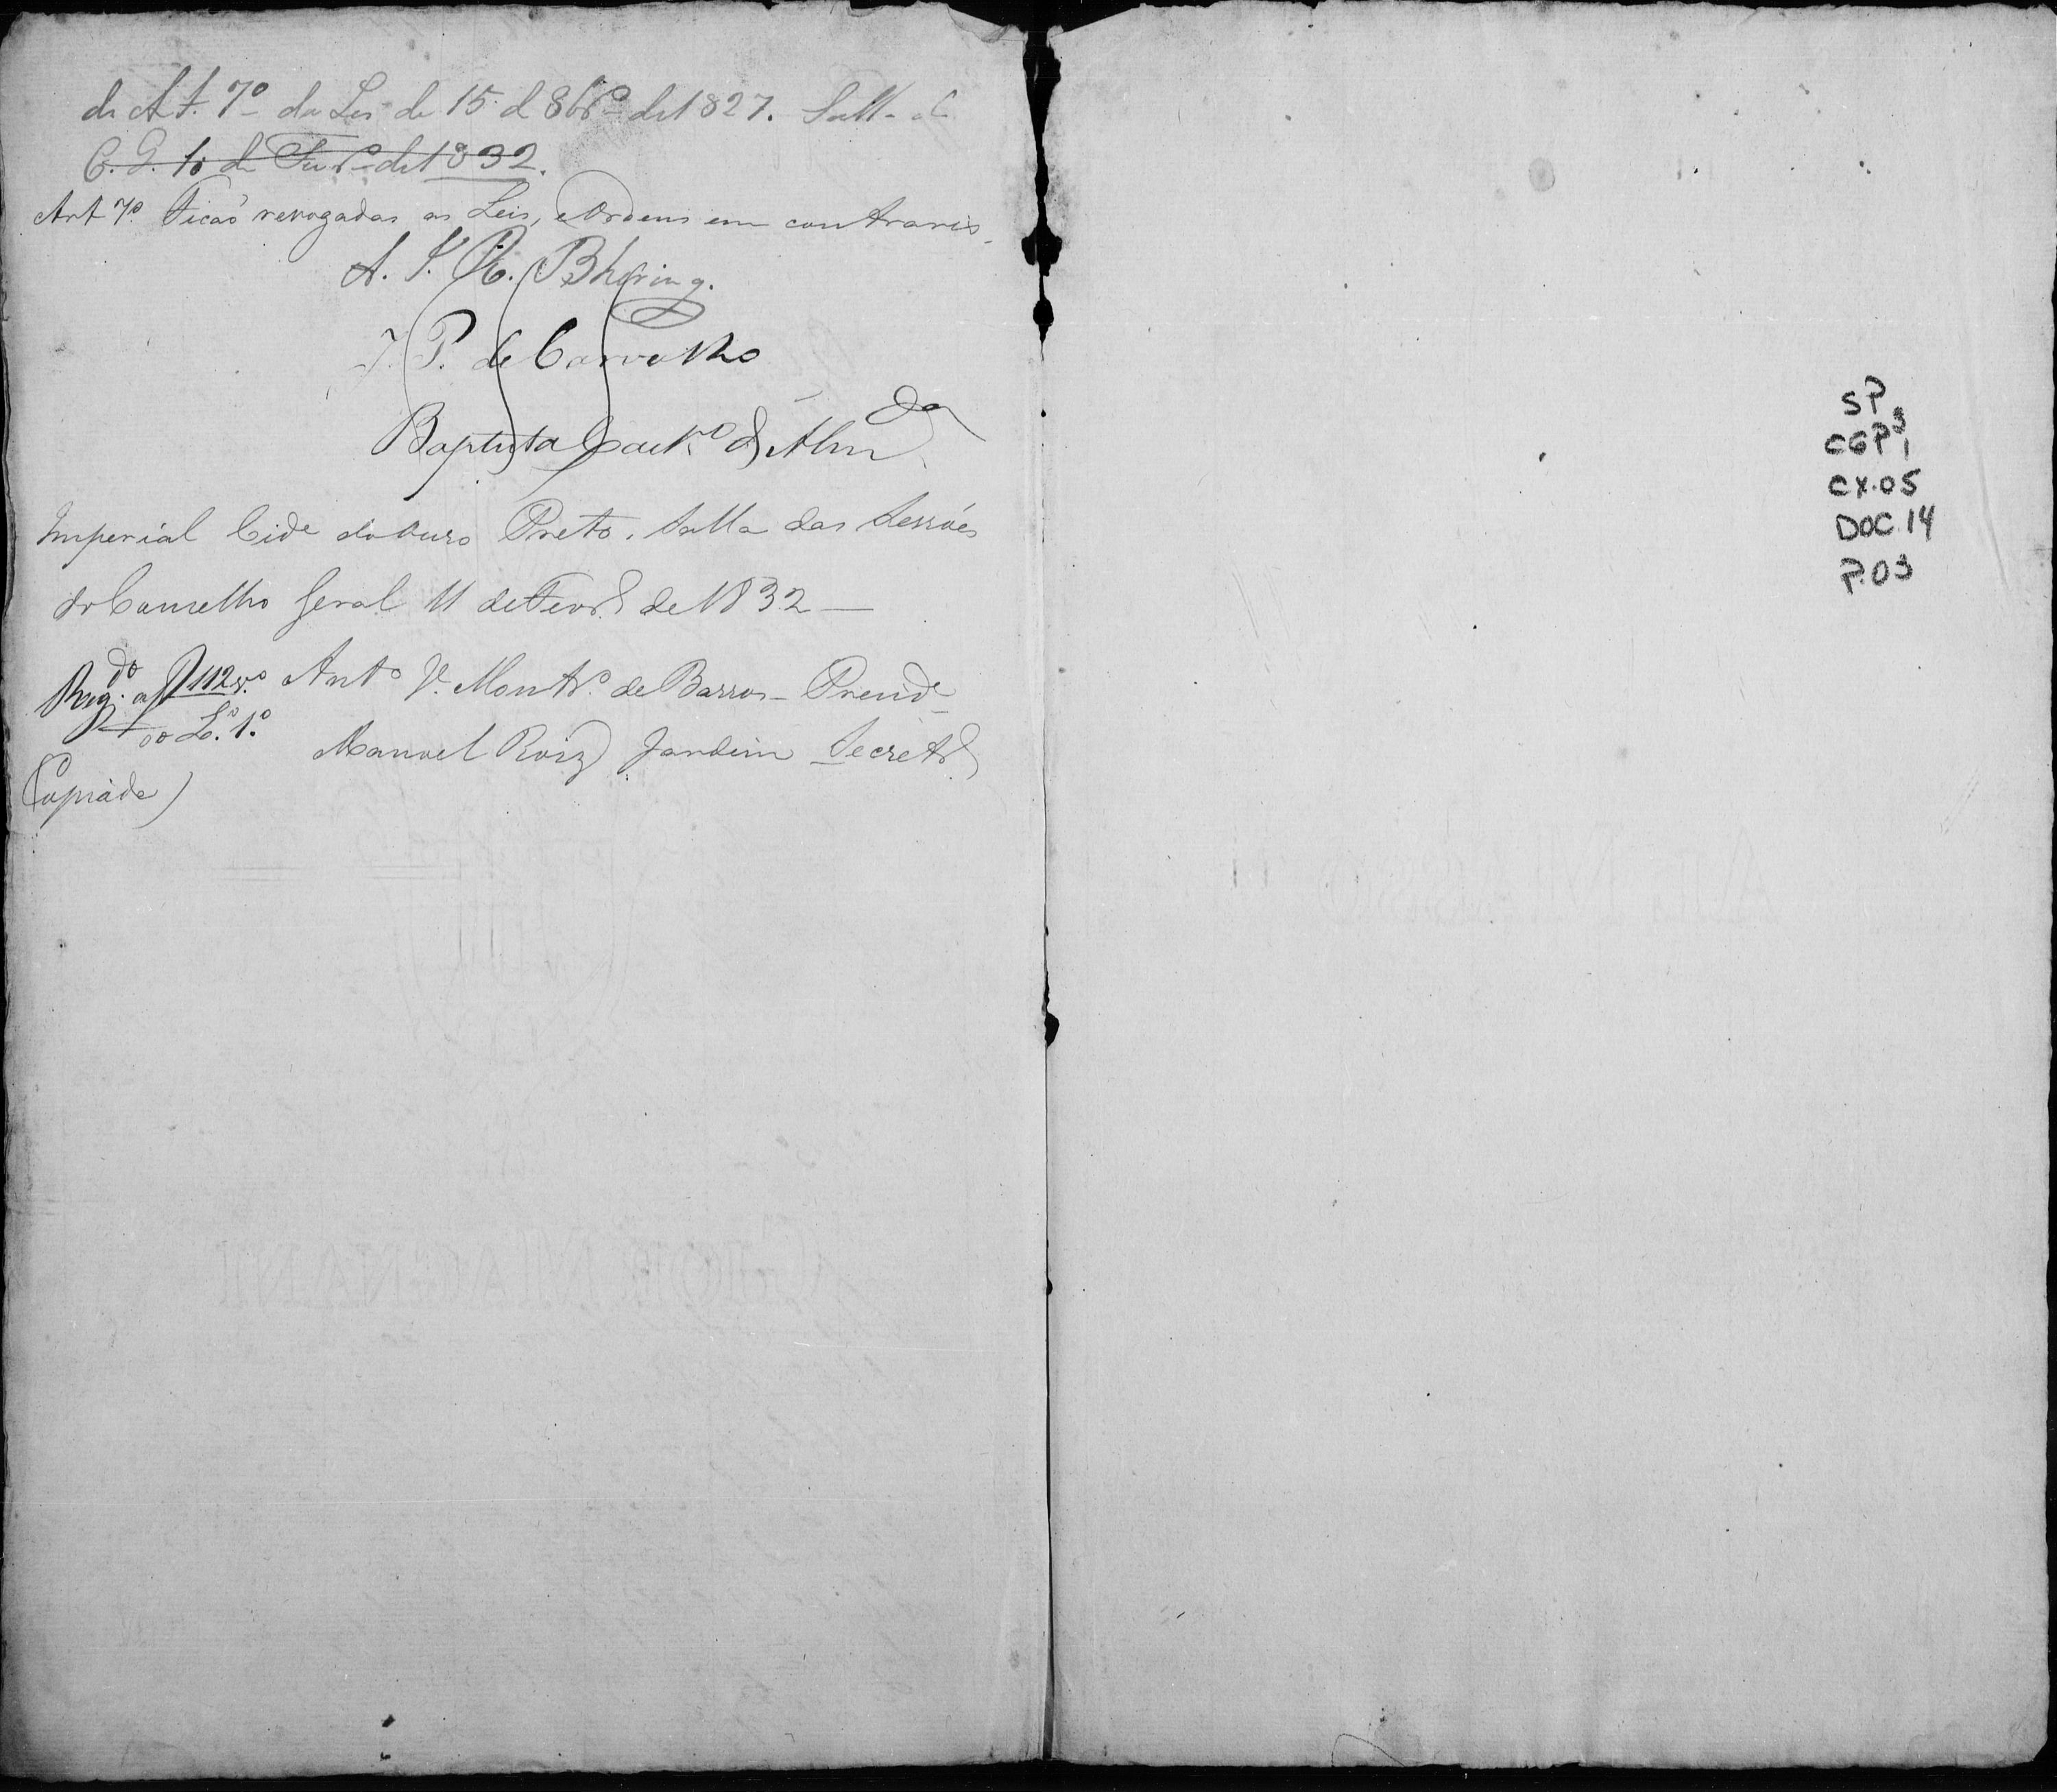 do Art. 7º da Lei de 15 d 8bro de 1827. Salla do
C. G. 10 de Fevro de 1832.
Art 7º Ficaõ revogadas as Leis, e Ordens em contrario.
A. J. R. Bhering.
J. P. de Carvalho
Baptista Caetº d'Almda
Imperial Cide do Ouro Preto, Salla das Sessões
do Conselho Geral 11 de Fevrº de 1832 —
Antº J. Montrº de Barros - Preside
Regdo a f 112 vº
do Lº. 1º
Manoel Roiz Jardim Secretrº
Copiada
SP
CGP 1
3
CX.05
DOC.14
P.03
AL MASSO
GIOR MAGNANI